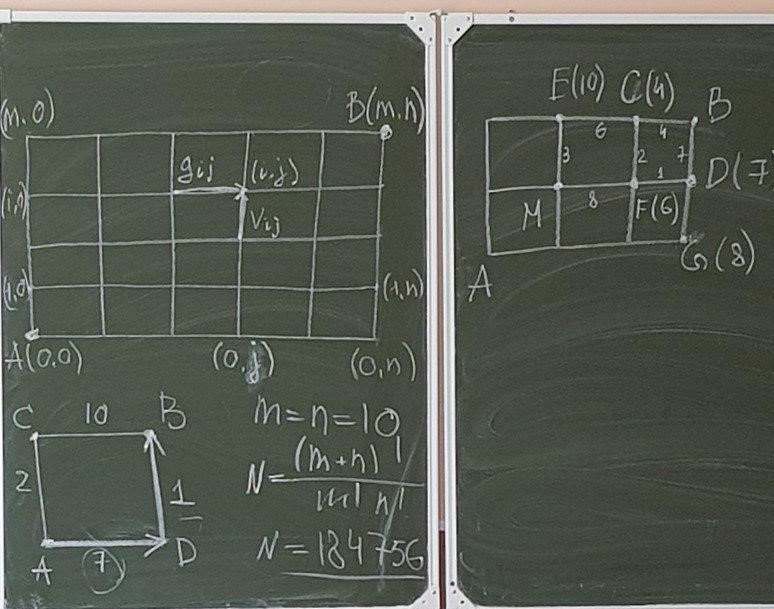 (m,0)
B(m,n)
gij
(i,j)
(i,0)
Vij
(1,0)
(1,n)
A(0,0)
(0,j)
(0,n)
C 10 B
2
1
A 7 D
m=n=10,
N= (m+n)!
m! n!
N=184756
E(10) C(4) B
6 4
3 2 7
1
D(7)
M 8 F(6)
G(8)
A